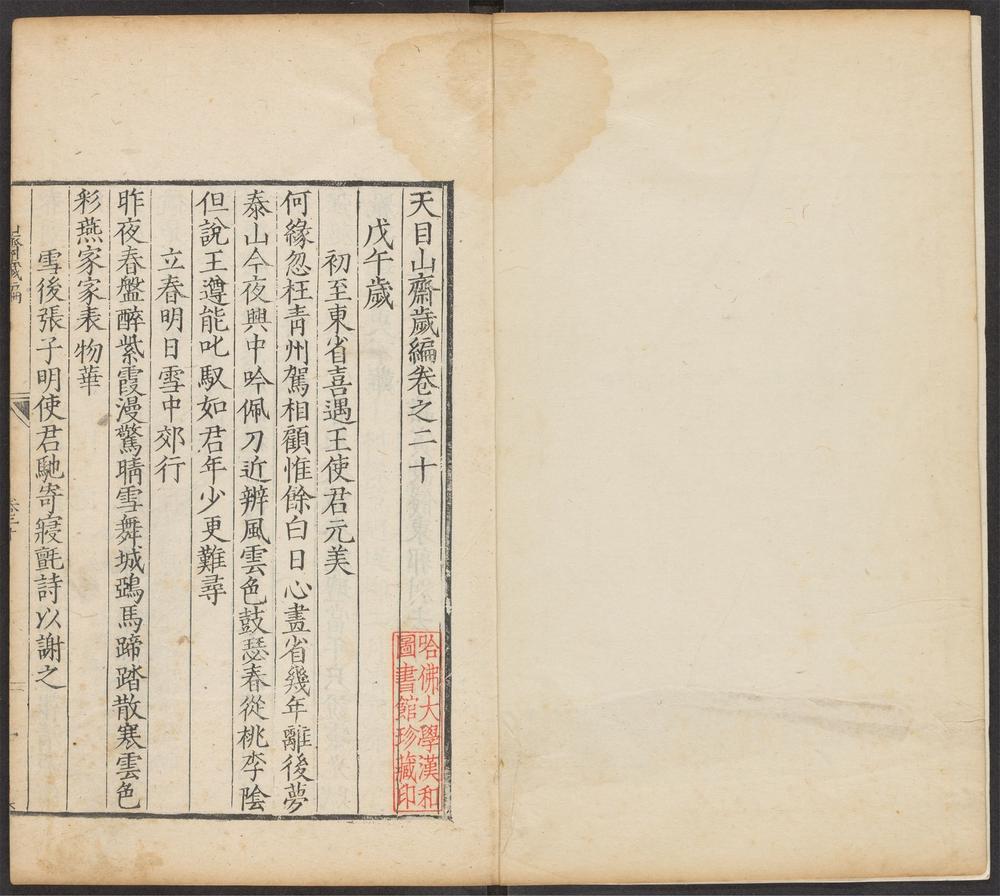 天目山齋歲編卷之二十
戊午歲
初至東省喜遇王使君元美
何緣忽枉青州駕相顧惟餘白日心畫省幾年離後夢
泰山今夜興中吟佩刀近辨風雲色鼓瑟春從桃李陰
但說王遵能叱馭如君年少更難尋
立春明日雪中郊行
昨夜春盤醉紫霞漫驚晴雪舞城鵶馬蹄踏散寒雲色
彩燕家家表物華
雪後張子明使君馳寄寢氈詩以謝之
哈佛大學漢和
圖書館珍藏印